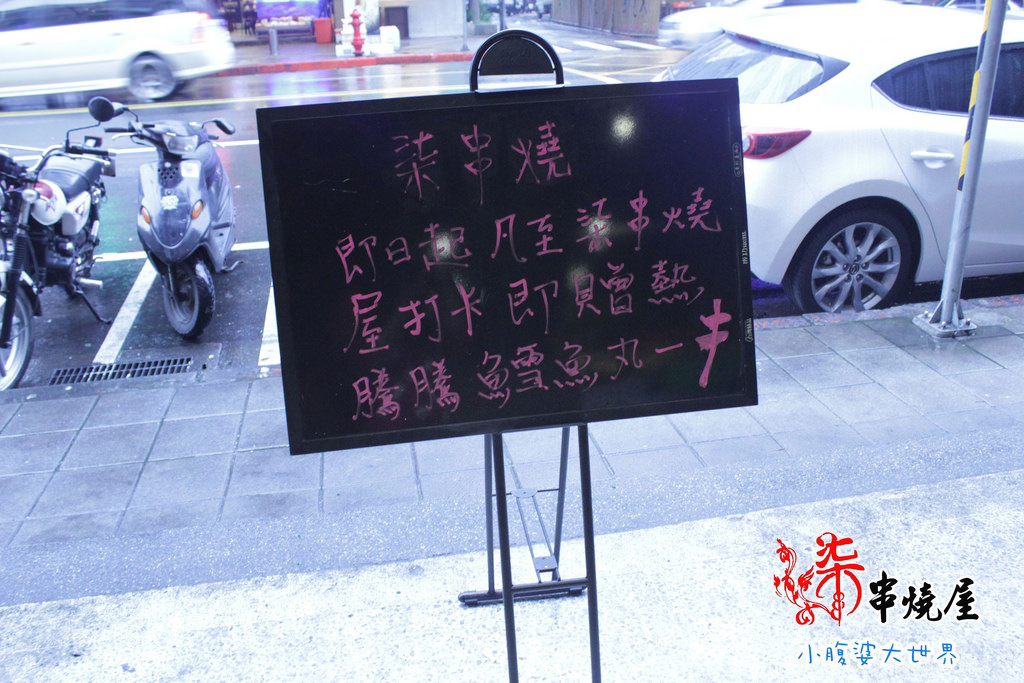 柒串燒
即日起 凡至柒串燒
屋打卡即贈熱
騰騰鱈魚丸一串
柒串燒屋
小腹婆大世界